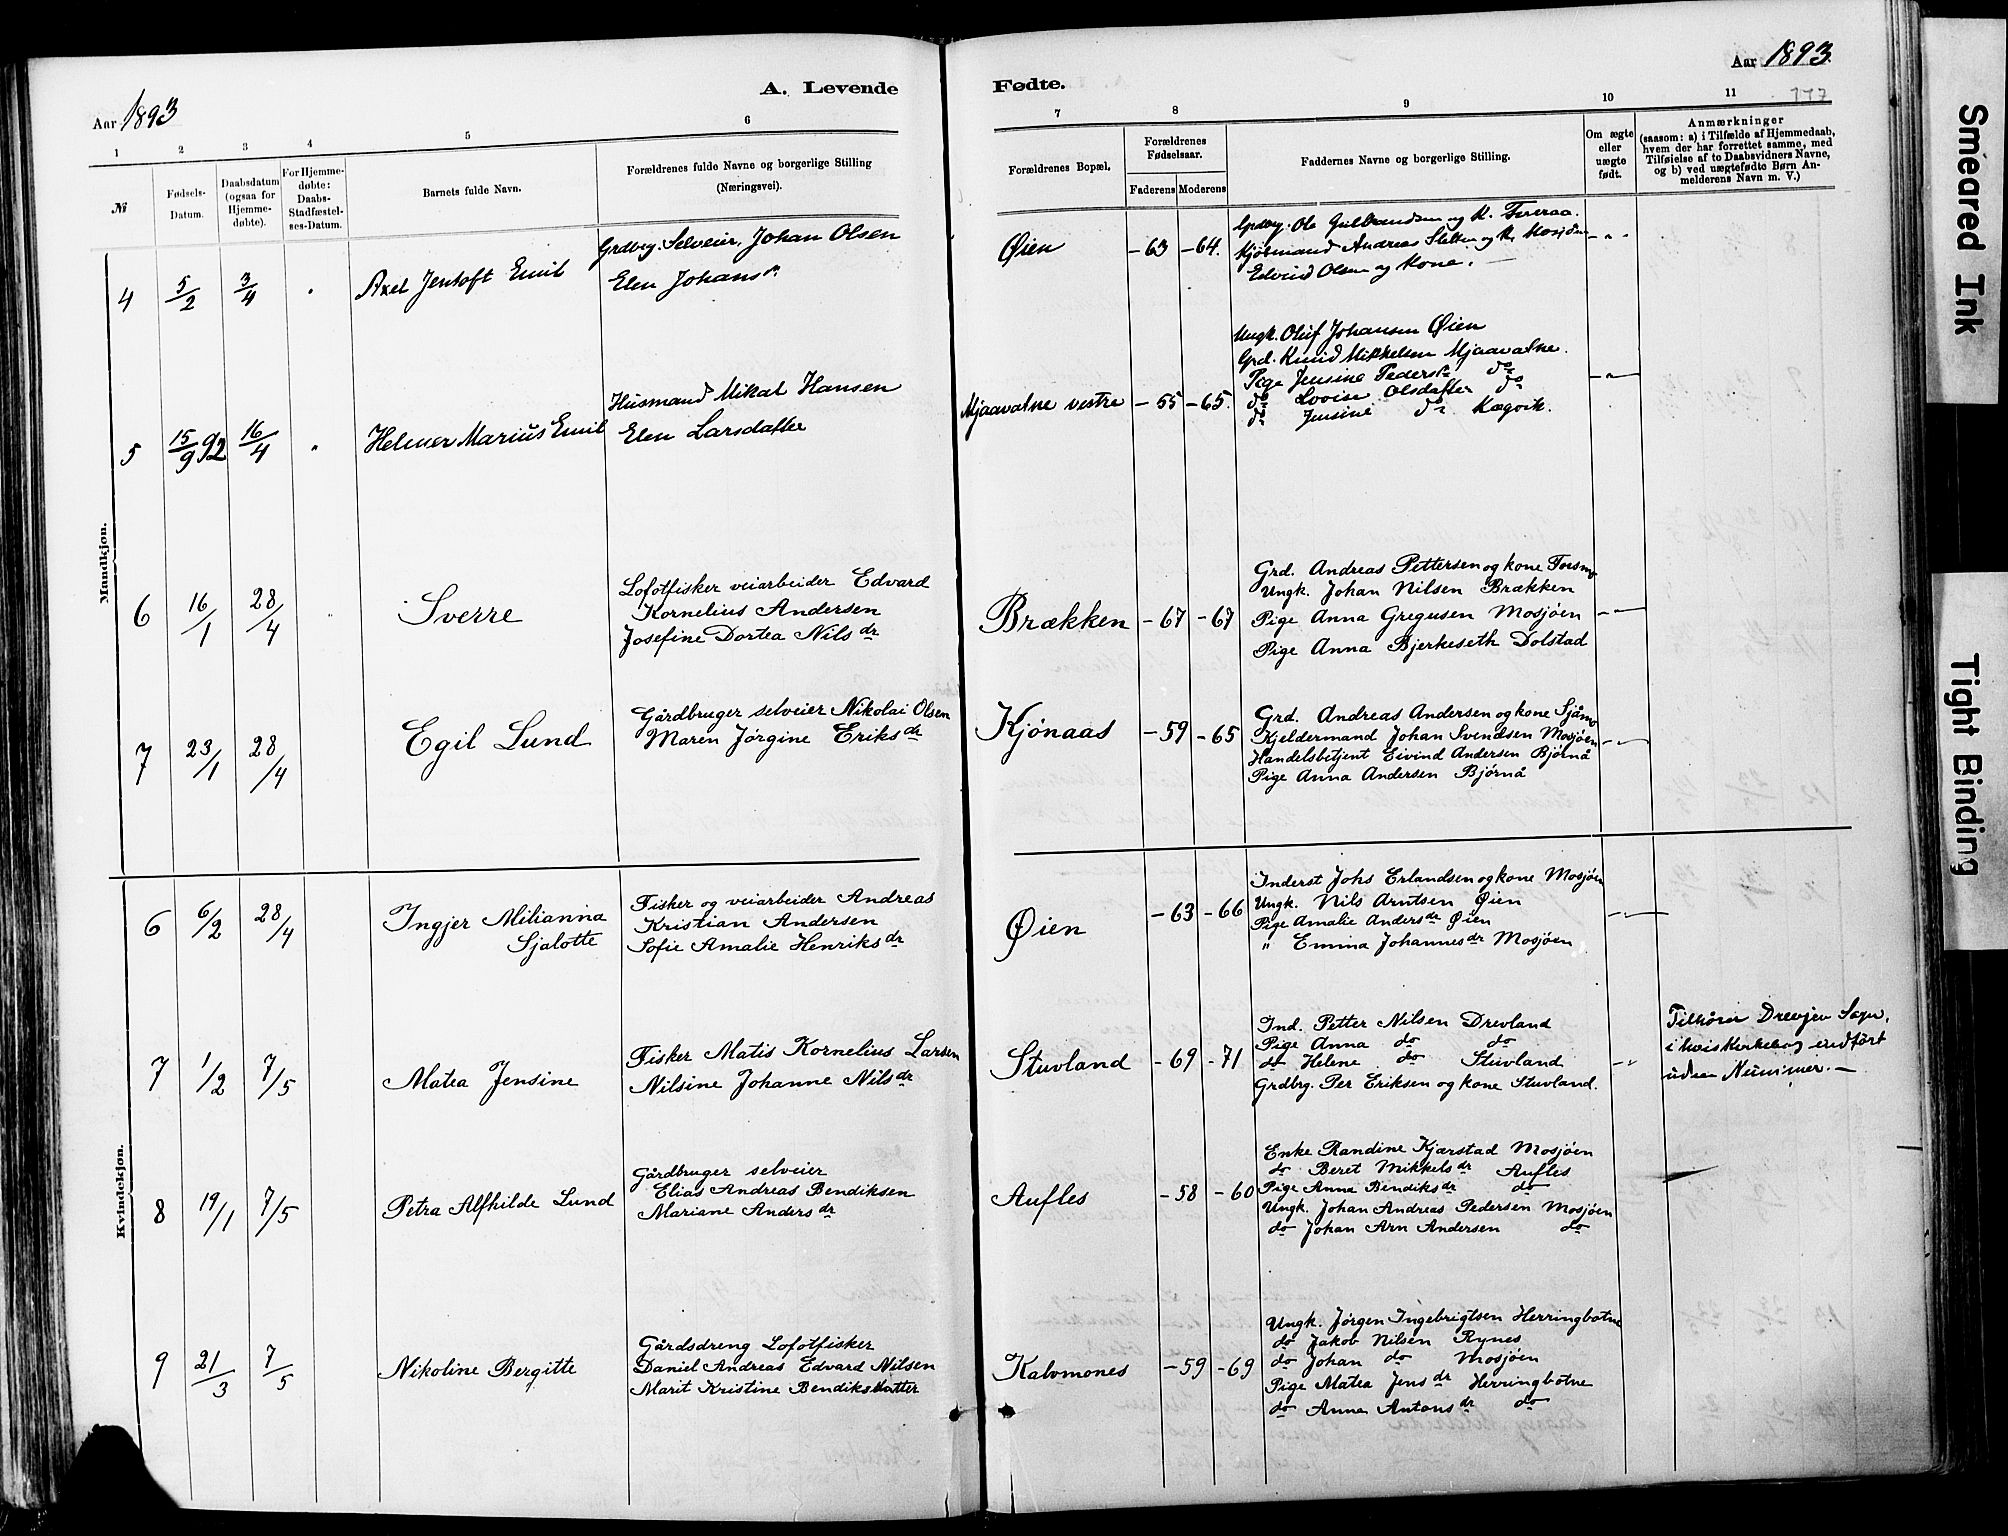 Aar 1893
A. Levende
Fødte.
Aar 1893.
117
1 2 3 4 5 6 7 8 9 10 11
№
Fødsels-
Datum.
Daabsdatum
(ogsaa for
Hjemme-
døbte).
For Hjemme-
døbte:
Daabs-
Stadfæstel-
ses-Datum.
Barnets fulde Navn.
Forældrenes fulde Navne og borgerlige Stilling
(Næringsvei).
Forældrenes Bopæl.
Forældrenes
Fødselsaar.
Faderens Moderens
Faddernes Navne og borgerlige Stilling.
Om ægte
eller
uægte
født.
Anmærkninger
(saasom: a) i Tilfælde af Hjemmedaab,
hvem der har forrettet samme, med
Tilføielse af to Daabsvidners Navne,
og b) ved uægtefødte Børn An-
melderens Navn m. V.)
Mandkjøn.
4 5/2 3/4 Axel Jentoft Emil
Grdbrg. Selveier, Johan Olsen
Elen Johansdr.
Øien -63 -64.
Grdbrg. Ole Gulbrandsen og K.
Andreas og K. Mosjøen
Edvind Olsen og Kone.
5 15/9 92 16/4 Helmer Marius Emil
Husmand Mikal Hansen
Elen Larsdatter
Mjaavatne vestre -55 -65.
Ungk. Oluf Johansen Øien
Grd. Knud Mikkelsen Mjaavatne.
Pige Jensine Pedersdr do
do Lovise Olsdatter do
do Jensine do
6 16/1 28/4 Sverre
Lofotfisker veiarbeider Edvard
Kornelius Andersen
Josefine Dortea Nilsdr
Brækken -67 -67
Grd. Andreas Pettersen og kone Forsmo
Ungk. Johan Nilsen Brækken
Pige Anna Gregusen Mosjøen
Pige Anna Bjerkeseth Dolstad
7 23/1 28/4 Egil Lund
Gårdbruger selveier Nikolai Olsen
Maren Jørgine Eriksdr
Kjønaas -59 -65
Grd. Andreas Andersen og kone Sjåmo
Kjeldermand Johan Svendsen Mosjøen
Handelsbetjent Eivind Andersen Bjørnå
Pige Anna Andersen Bjørnå
Kvindekjøn.
6 6/2 28/4 Ingjer Milianna
Sjalotte
Fisker og veiarbeider Andreas
Kristian Andersen
Sofie Amalie Henriksdr
Øien -63 -66
Inderst Johs Erlandsen og kone Mosjøen
Ungk. Nils Arntsen Øien
Pige Amalie Andersdr Øien
" Emma Johannesdr Mosjøen
7 1/2 7/5 Matea Jensine
Fisker Matis Kornelius Larsen
Nilsine Johanne Nilsdr
Stuvland -69 -71
Ind. Petter Nilsen Drevland
Pige Anna do do
do Helene do Stuvland
Grdbrg. Per Eriksen og kone Stuvland.
Tilhører Drevjen Sogn,
i hvis Kirkebog indført
uden Nummer. —
8 19/1 7/5 Petra Alfhilde Lund
Gårdbruger selveier
Elias Andreas Bendiksen
Mariane Andersdr
Aufles -58 -60
Enke Randine Kjærstad Mosjøen
do Beret Mikkelsdr Aufles
Pige Anna Bendiksdr do
Ungk. Johan Andreas Pedersen Mosjøen
do Johan Arn Andersen do
9 21/3 7/5 Nikoline Bergitte
Gårdsdreng Lofotfisker
Daniel Andreas Edvard Nilsen
Marit Kristine Bendiksdatter
Kalvmones -59 -69
Ungk. Jørgen Ingebrigtsen Herringbotne
do Jakob Nilsen Rynes
do Johan do Mosjøen
Pige Matea Jensdr Herringbotne
do Anne Antonsdr do
Smeared Ink
Tight Binding